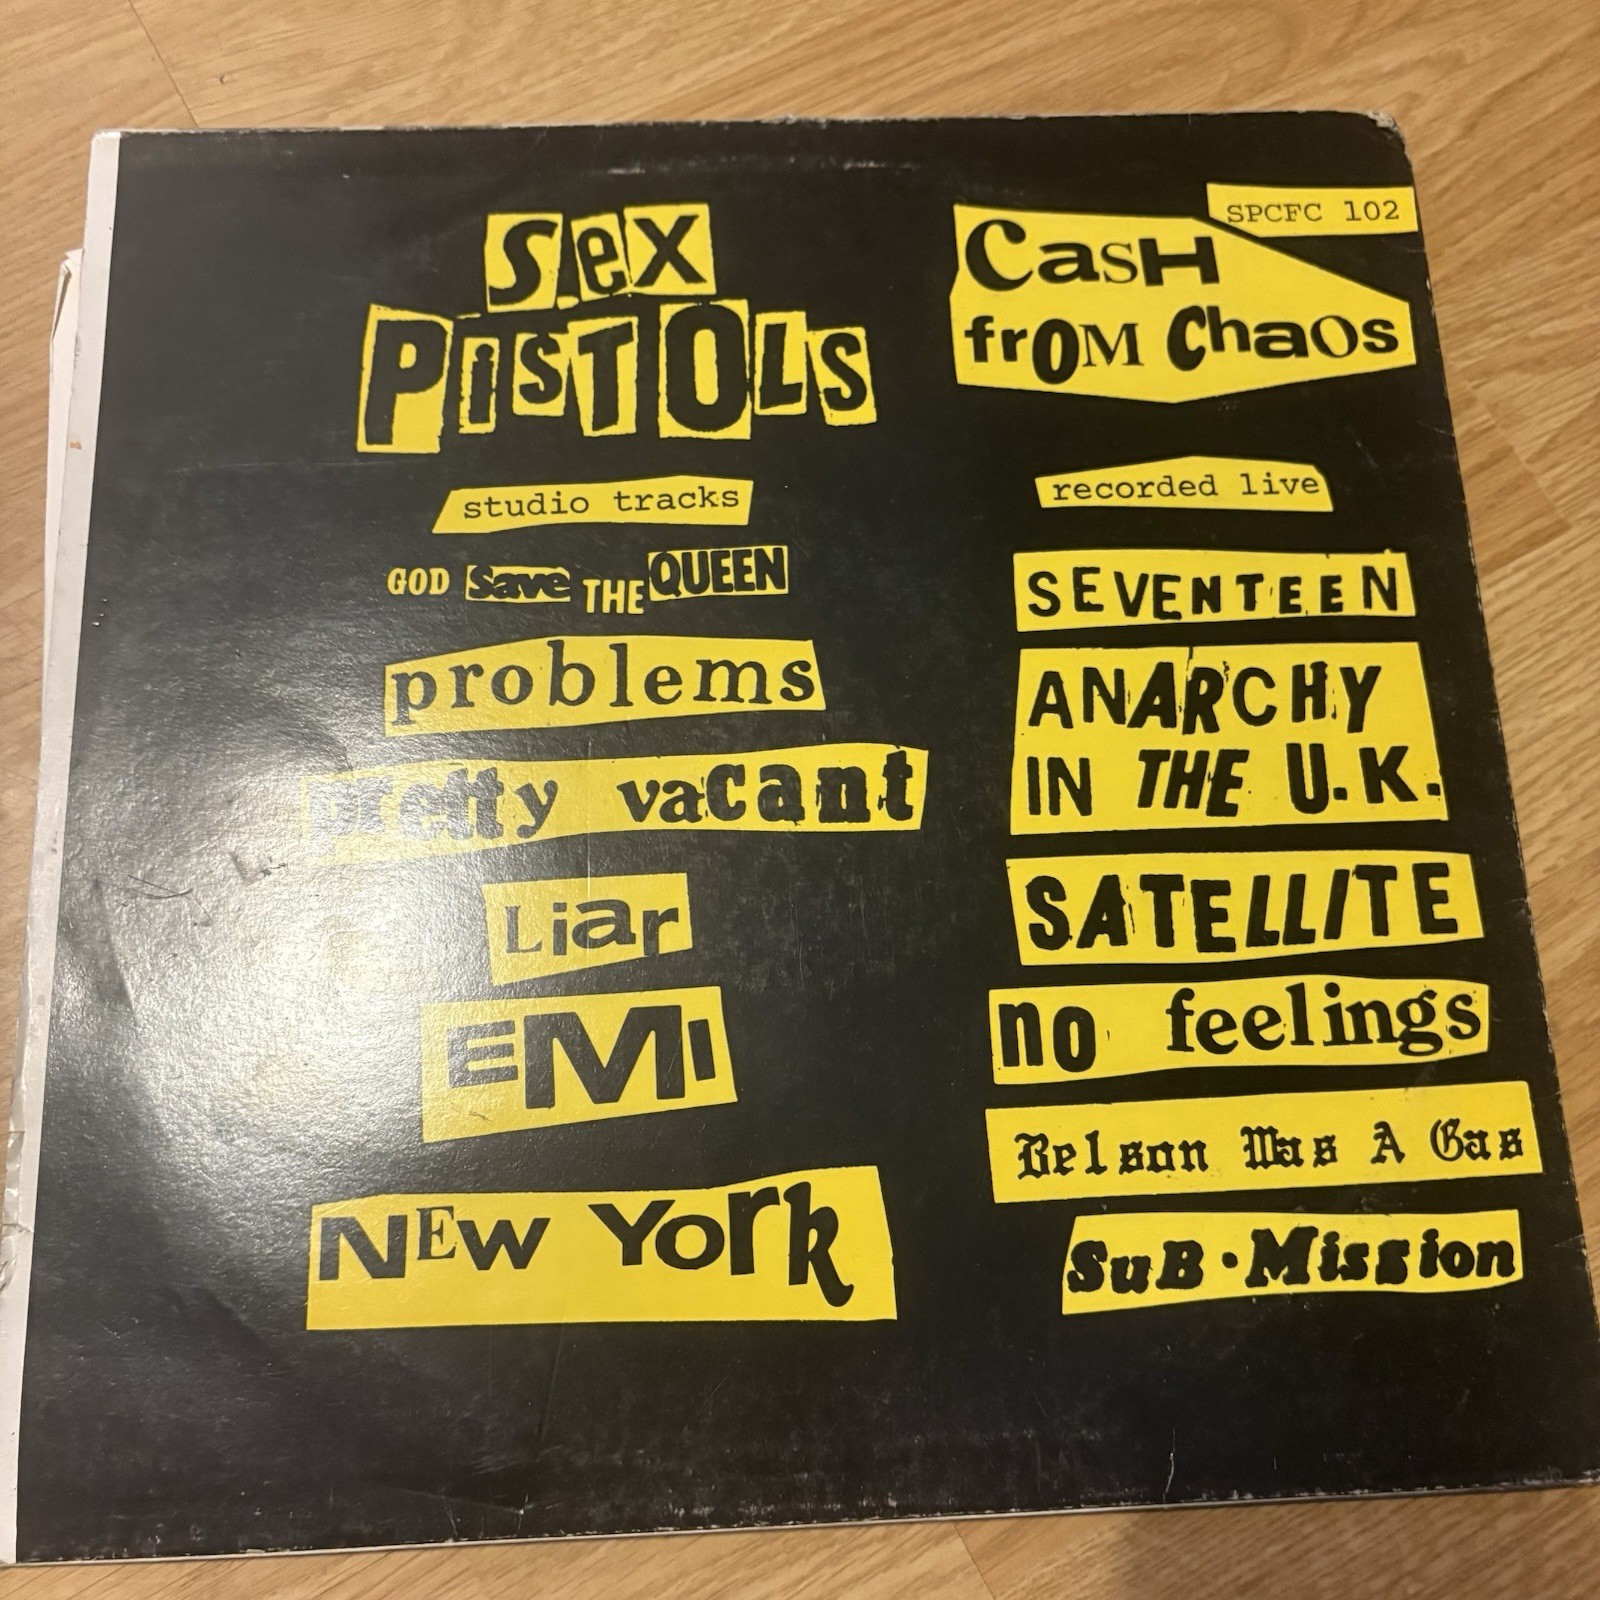 Sex
PISTOLS
studio tracks
GOD Save THE QUEEN
problems
pretty vacant
Liar
EMI
NEw YOrk
SPCFC 102
CasH
frOM Chaos
recorded live
SEVENTEEN
ANARCHY
IN THE U.K.
SATELLITE
no feelings
Belson Was A Gas
SuB·Mission